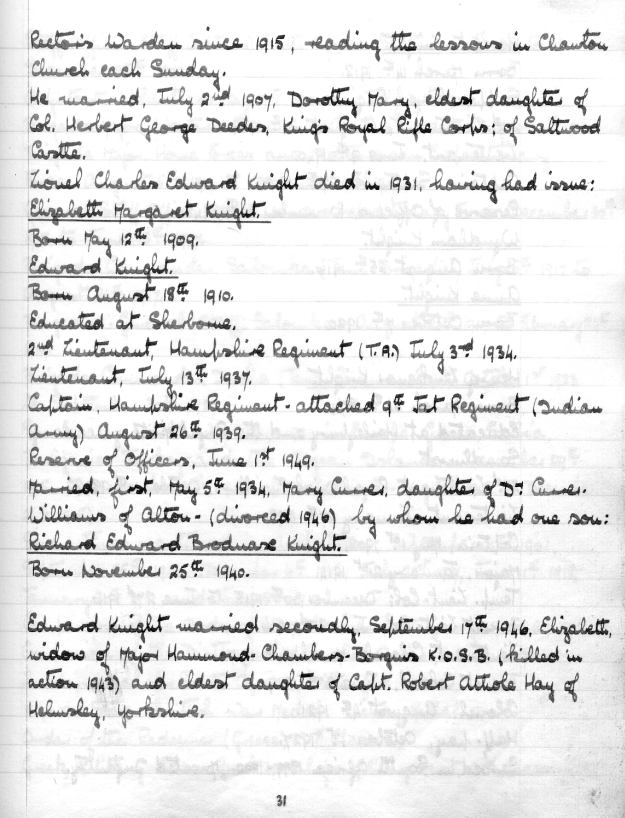 Rector's Warden since 1915, reading the lessons in Chawton
Church each Sunday.
He married, July 2nd 1907, Dorothy Mary, eldest daughter of
Col. Herbert George Deedes, King's Royal Rifle Corps; of Saltwood
Castle.
Lionel Charles Edward Knight died in 1931, having had issue:
Elizabeth Margaret Knight.
Born May 12th 1909.
Edward Knight.
Born August 18th 1910.
Educated at Sherborne.
2nd Lieutenant, Hampshire Regiment (T.A.) July 3rd 1934.
Lieutenant, July 13th 1937.
Captain, Hampshire Regiment - attached 9th Jat Regiment (Indian
Army) August 26th 1939.
Reserve of Officers, June 1st 1949.
Married, first, May 5th 1934, Mary Currer, daughter of Dr Currer-
Williams of Alton - (divorced 1946) by whom he had one son:
Richard Edward Brodnax Knight.
Born November 25th 1940.
Edward Knight married secondly, September 17th 1946, Elizabeth,
widow of Major Hammond-Chambers-Borgnis K.O.S.B. (killed in
action 1943) and eldest daughter of Capt. Robert Athole Hay of
Helmsley, Yorkshire.
31